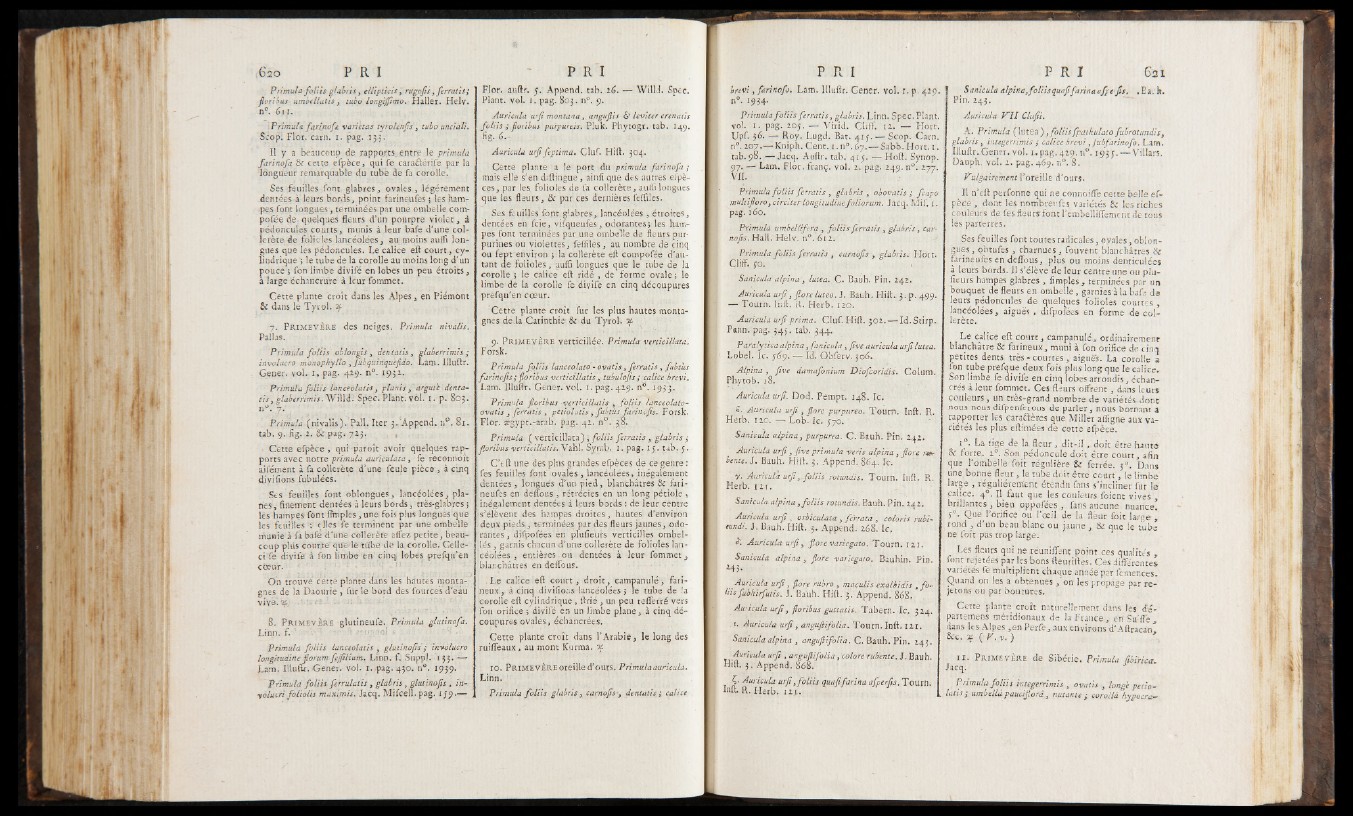 620 P R I
Primula foliis glabris, ellipticis, rugosis, serratis;
floribus umbellatis, tubo longissimo. Haller. Helv.
n°. 611.
Primula farinosa varietas tyrolensis, tubo unciali.
Scop. Flor. carn. 1. pag. 133.
Il y a beaucoup de rapports entre le primula
farinosa & cette espèce, qui se caractérise par la
longueur remarquable du tube de sa corolle.
Ses feuilles sont glabres, ovales, légérement
dentées à leurs bords, point farineuses; les ham-
pes sont longues, terminées par une ombelle com-
posée de quelques fleurs d'un pourpre violet, à
pédoncules courts, munis à leur base d'une col-
lerète de folioles lancéolées, au moins aussi lon-
gues que les pédoncules. Le calice est court, cy-
lindrique; le tube de la corolle au moins long d'un
pouce; son limbe divisé en lobes un peu étroits,
à large échancrure à leur sommet.
Cette plante croît dans les Alpes, en Piémont
& dans le Tyrol. ♃
7. PRIMEVÈRE des neiges. Primula nivalis.
Pallas.
Primula foliis oblongis, dentatis, glaberrimis;
involucro monophyllo, subquinquefido. Lam. Illustr.
Gener. vol. 1, pag. 429. n°. 1932.
Primula foliis lanceolatis, planis, argutè denta-
tis, glaberrimis. Willd. Spec. Plant. vol. 1. p. 803.
n°. 7.
Primula (nivalis). Pall. Iter 3. Append. n°. 81.
tab. 9. fig. 2. & pag. 723.
Cette espèce, qui paroît avoir quelques rap-
ports avec notre primula auriculata, se reconnoît
aisément à sa collerète d'une seule pièce, à cinq
divisions subulées.
Ses feuilles sont oblongues, lancéolées, pla-
nes, finement dentées à leurs bords, très-glabres;
les hampes sont simples, une fois plus longues que
les feuilles; elles se terminent par une ombelle
munie à sa base d'une collerète assez petite, beau-
coup plus courte que le tube de la corolle. Celle-
ci se divise à son limbe en cinq lobes presqu'en
cœur.
On trouve cette plante dans les hautes monta-
gnes de la Daourie, sur le bord des sources d'eau
vive. ♃
8. PRIMEVÈRE glutineuse. Primula glutinosa.
Linn. f.
Primula foliis lanceolatis, glutinosis; involucro
longitudine florum sessilium. Linn. f. Suppl. 133. —
Lam. Illustr. Gener. vol. 1. pag. 430. n°. 1939.
Primula foliis serrulatis, glabris, glutinosis, in-
volucri foliolis maximis. Jacq. Miscell. pag. 159.—
P R I
Flor. austr. 5. Append. tab. 26. — Willd. Spec.
Plant. vol. 1. pag. 803. n°. 9.
Auricula ursi montana, angustis & leviter crenatis
foliis; floribus purpureis. Pluk. Phytogr. tab. 249.
fig. 6.
Auricula ursi septima. Clus. Hist. 304.
Cette plante a le port du primula farinosa;
mais elle s'en distingue, ainsi que des autres espè-
ces, par les folioles de sa collerète, aussi longues
que les fleurs, & par ces dernières sessiles.
Ses feuilles sont glabres, lancéolées, étroites,
dentées en scie, visqueuses, odorantes; les ham-
pes sont terminées par une ombelle de fleurs pur-
purines ou violettes, sessiles, au nombre de cinq
ou sept environ; la collerète est composée d'au-
tant de folioles, aussi longues que le tube de la
corolle; le calice est ridé, de forme ovale; le
limbe de la corolle se divise en cinq découpures
presqu'en cœur.
Cette plante croît sur les plus hautes monta-
gnes de la Carinthie & du Tyrol. ♃
9. PRIMEVÈRE verticillée. Primula verticillata.
Forsk.
Primula foliis lanceolato-ovatis, serratis, subtùs
farinosis; floribus verticillatis, tubulosis; calice brevi.
Lam. Illustr. Gener. vol. 1. pag. 429. n°. 1933.
Primula floribus verticillatis, foliis lanceolato-
ovatis, serratis, petiolatis, subtùs farinosis. Forsk.
Flor. ægypt.-arab. pag. 42. n°. 38.
Primula (verticillata); foliis serratis, glabris;
floribus verticillatis. Vahl. Symb. 1. pag. 15. tab. 5.
C'est une des plus grandes espèces de ce genre:
ses feuilles sont ovales, lancéolées, inégalement
dentées, longues d'un pied, blanchâtres & fari-
neuses en dessous, rétrécies en un long pétiole,
inégalement dentées à leurs bords: de leur centre
s'élèvent des hampes droites, hautes d'environ
deux pieds, terminées par des fleurs jaunes, odo-
rantes, disposées en plusieurs verticilles ombel-
lés, garnis chacun d'une collerète de folioles lan-
céolées, entières ou dentées à leur sommet,
blanchâtres en dessous.
Le calice est court, droit, campanulé, fari-
neux, à cinq divisions lancéolées; le tube de la
corolle est cylindrique, strié, un peu resserré vers
son orifice; divisé en un limbe plane, à cinq dé-
coupures ovales, échancrées.
Cette plante croît dans l'Arabie, le long des
ruisseaux, au mont Kurma. ♃
10. PRIMEVÈRE oreille d'ours. Primula auricula.
Linn.
Primula foliis glabris, carnosis, dentatis; calice
P R I
brevi, farinoso. Lam. Illustr. Gener. vol. 1. p. 429.
n°. 1934.
Primula foliis serratis, glabris. Linn. Spec. Plant.
vol. 1. pag. 205. — Virid. Cliff. 12. — Hort.
Upf. 36. — Roy. Lugd. Bat. 415. — Scop. Carn.
n°. 207.—Kniph. Cent. 1. n°. 67.—Sabb. Hort. 1.
tab. 98. — Jacq. Austr. tab. 415. — Hoft. Synop.
97. — Lam. Flor. franç. vol. 2. pag. 249. n°. 277.
VII.
Primula foliis serratis, glabris, obovatis; scapo
multifloro, circiter longitudine foliorum. Jacq. Mis. 1.
pag. 160.
Primula umbellifera, foliis serratis, glabris, car-
nosis. Hall. Helv. n°. 612.
Primula foliis serratis, carnosis, glabris. Hort.
Cliff. 50.
Sanicula alpina, lutea. C. Bauh. Pin. 242.
Auricula ursi, flore luteo. J. Bauh. Hist. 3. p. 499.
— Tourn. Inst. R. Herb. 120.
Auricula ursi prima. Clus. Hist. 302. — Id. Stirp.
Pann. pag. 345. tab. 344.
Paralytica alpina, sanicula, sive auricula ursi lutea.
Lobel. Ic. 569. — Id. Observ. 306.
Alpina, sive damasonium Dioscoridis. Colum.
Phytob. 18.
Auricula ursi. Dod. Pempt. 148. Ic.
Auricula ursi, flore purpureo. Tourn. Inst. R.
Herb. 120. — Lob. Ic. 570.
Sanicula alpina, purpurea. C. Bauh. Pin. 242.
Auricula ursi, sive primula veris alpina, flore ru-
bente. J. Bauh. Hist. 3. Append. 864. Ic.
γ. Auricula ursi, foliis rotundis. Tourn. Inst. R.
Herb. 121.
Sanicula alpina, foliis rotundis. Bauh. Pin. 242.
Auricula ursi, orbiculata, serrata, coloris rubi-
cundi. J. Bauh. Hist. 3. Append. 268. Ic.
δ. Auricula ursi, flore variegato. Tourn. 121.
Sanicula alpina, flore variegato. Bauhin. Pin.
243.
Auricula ursi, flore rubro, maculis exalbidis, fo-
liis subhirsutis. J. Bauh. Hist. 3. Append. 868.
Auricula ursi, floribus guttatis. Tabern. Ic. 324.
ε. Auricula ursi, angustifolia. Tourn. Inst. 121.
Sanicula alpina, angustifolia. C. Bauh. Pin. 243.
Auricula ursi, angustifolia, colore rubente. J. Bauh.
Hist. 3. Append. 868.
ζ. Auricula ursi, foliis quasi farina aspersis. Tourn.
Inst. R. Herb. 121.
P R I 621
Sanicula alpina, foliis quasi farina aspersis. Bauh.
Pin. 243.
Auricula VII Clusii.
A. Primula (lutea), foliis spathulato subrotundis,
glabris, integerrimis; calice brevi, subfarinoso. Lam.
Illustr. Gener. vol. 1. pag. 429. n°. 1935. — Villars.
Dauph. vol. 2. pag. 469. n°. 8.
Vulgairement l'oreille d'ours.
Il n'est personne qui ne connoisse cette belle es-
pèce, dont les nombreuses variétés & les riches
couleurs de ses fleurs font l'embellissement de tous
les parterres.
Ses feuilles sont toutes radicales, ovales, oblon-
gues, obtuses, charnues, souvent blanchâtres &
farineuses en dessous, plus ou moins denticulées
à leurs bords. Il s'élève de leur centre une ou plu-
sieurs hampes glabres, simples, terminées par un
bouquet de fleurs en ombelle, garnies à la base de
leurs pédoncules de quelques folioles courtes,
lancéolées, aiguës, disposées en forme de col-
lerète.
Le calice est court, campanulé, ordinairement
blanchâtre & farineux, muni à son orifice de cinq
petites dents très-courtes, aiguës. La corolle a
son tube presque deux fois plus long que le calice.
Son limbe se divise en cinq lobes arrondis, échan-
crés à leur sommet. Ces fleurs offrent, dans leurs
couleurs, un très-grand nombre de variétés dont
nous nous dispenserons de parler, nous bornant à
rapporter les caractères que Miller assigne aux va-
riétés les plus estimées de cette espèce.
1°. La tige de la fleur, dit-il, doit être haute
& forte. 2°. Son pédoncule doit être court, afin
que l'ombelle soit régulière & serrée. 3°. Dans
une bonne fleur, le tube doit être court, le limbe
large, régulièrement étendu sans s'incliner sur le
calice. 4°. Il faut que les couleurs soient vives,
brillantes, bien opposées, sans aucune nuance.
5°. Que l'orifice ou l'œil de la fleur soit large,
rond, d'un beau blanc ou jaune, & que le tube
ne soit pas trop large.
Les fleurs qui ne réunissent point ces qualités,
sont rejetées par les bons fleuristes. Ces différentes
variétés se multiplient chaque année par semences.
Quand on les a obtenues, on les propage par re-
jetons ou par boutures.
Cette plante croît naturellement dans les dé-
partemens méridionaux de la France, en Suisse,
dans les Alpes, en Perse, aux environs d'Astracan,
&c. ♃ (V. v.)
11. PRIMEVÈRE de Sibérie. Primula sibirica.
Jacq.
Primula foliis integerrimis, ovatis, longè petio-
latis; umbellâ pauciflorâ, nutante; corollâ hypocra-